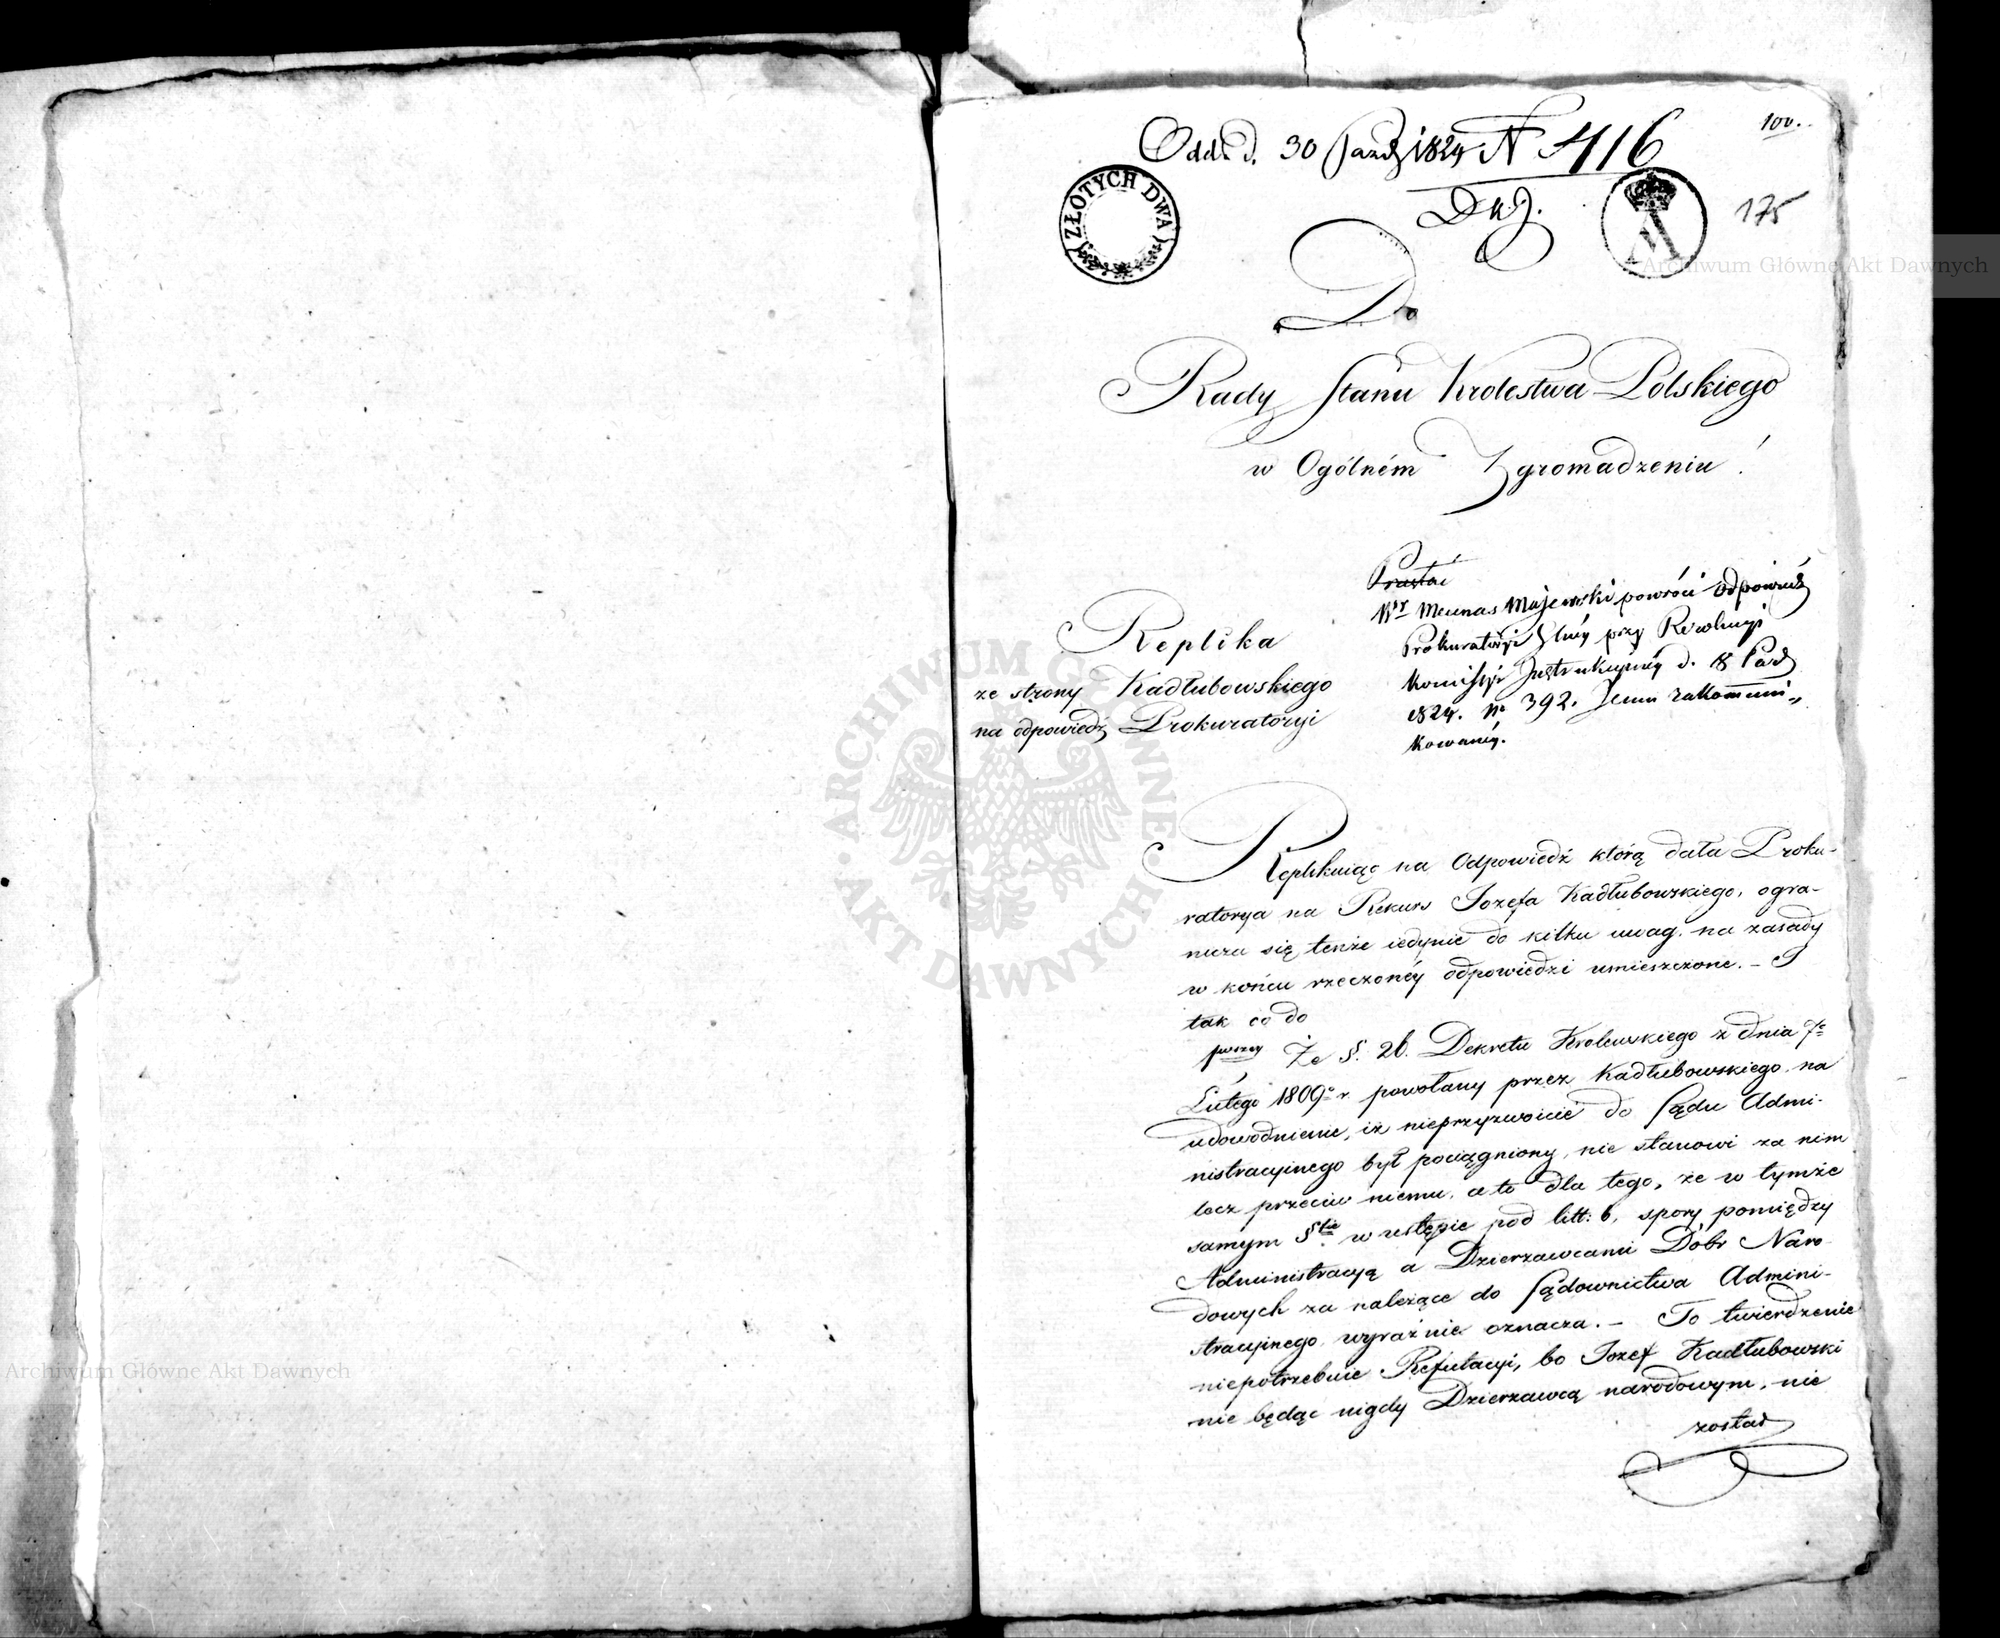 100.
Odd. d. 30 Paźdz 1824 N 416
175
ZŁOTYCH DWA
Do
Rady Stanu Krolestwa Polskiego
w Ogólném Zgromadzeniu!
Replika
ze strony Kadłubowskiego
na odpowiedź Prokuratoryi
Wny Mecenas Majewski powróci odpowiedź
Prokuratoryi przy Rewolucyi
Kommissyi Instrukcyiney d. 8 Paźdz
1824. No 392. Jemu zakommuni-
kowaney.
Replikuiąc na Odpowiedź którą dała Proku-
ratorya na Rekurs Jozefa Kadłubowskiego, ogra-
nicza się tenże iedynie do kilku uwag, na zasady
w końcu rzeczonéy odpowiedzi umieszczone. – I
tak co do
Że §. 26. Dekretu Krolewskiego z dnia 7o
Lutégo 1809o r. powołany przez Kadłubowskiego na
udowodnienie, iż nieprzyzwoicie do Sądu Admi-
nistracyinego był pociągniony, nie stanowi za nim
lecz przeciw niemu, a to dla tego, że w tymże
samym §fie w wstępie pod litt: b, spory pomiędzy
Administracyą a Dzierzawcami Dóbr Naro-
dowych za należące do Sądownictwa Admini-
stracyinego wyraźnie oznacza. – To twierdzenie
niepotrzebuie Refutacyi, bo Jozef Kadłubowski
nie będąc nigdy Dzierzawcą narodowym, nie
został
Archiwum Główne Akt Dawnych
ARCHIWUM GŁÓWNE AKT DAWNYCH
Archiwum Główne Akt Dawnych